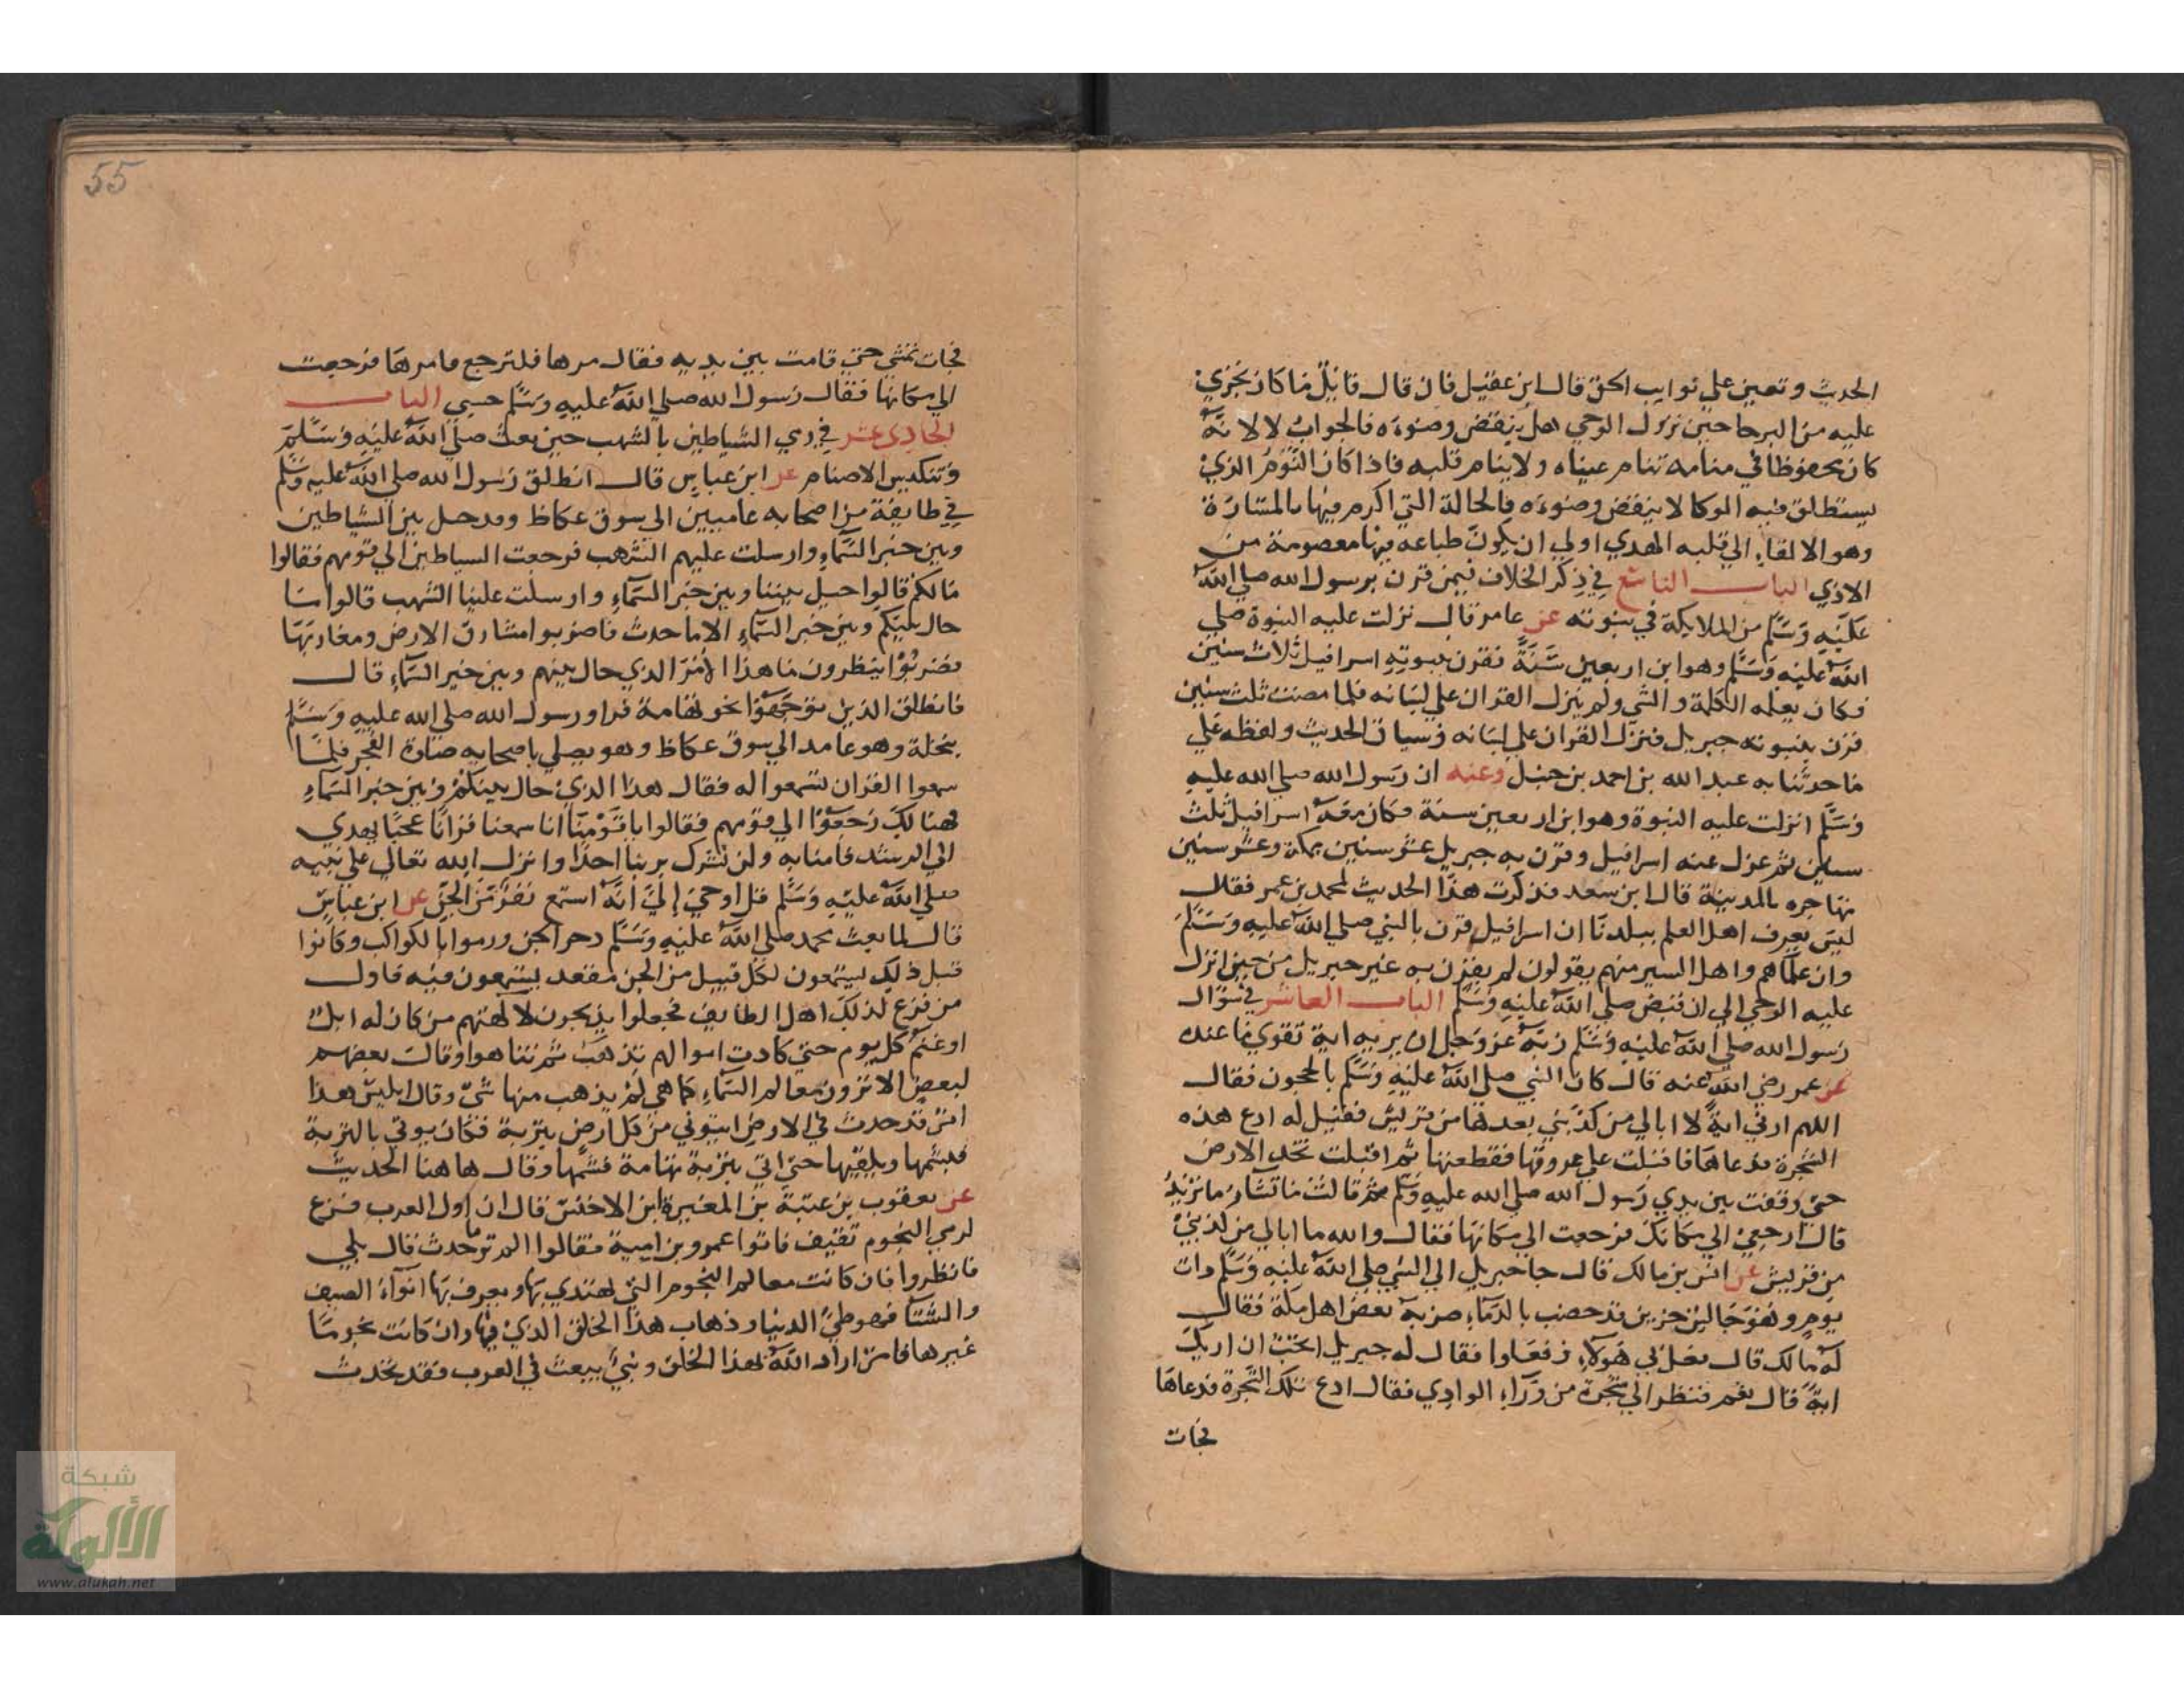 الحديث وتعين علي نوايب الحق قال ابن عقيل فان قال قايل فما كان يجري
عليه من البرحا حين نزول الوحي هل ينقض وضوءه فالجواب لا لانه
كان محفوظا في منامه تنام عيناه ولا ينام قلبه فاذا كان النوم الذي
يستطلق فيه الوكا لا ينقض وضوءه فالحالة التي اكرم فيها بالمسارة
وهو الالقاء الي قلبه الهدي اولي ان يكون طباعه فيها معصومة من
الاذي الباب التاسع في ذكر الخلاف فيمن قرن برسول الله صلي الله
عليه وسلم من الملايكة في نبوته عن عامر قال نزلت عليه النبوة صلي
الله عليه وسلم وهو ابن اربعين سنة فقرن بنبوته اسرافيل ثلاث سنين
فكان يعلمه الكلمة والشي ولم ينزل القران علي لسانه فلما مضت ثلث سنين
قرن بنبوته جبريل فنزل القران علي لسانه وسياق الحديث ولفظه علي
ما حدثنا به عبد الله بن احمد بن حنبل وعنه ان رسول الله صلي الله عليه
وسلم انزلت عليه النبوة وهو ابن اربعين سنة فكان معه اسرافيل ثلث
سنين ثم عزل عنه اسرافيل وقرن به جبريل عشر سنين بمكة وعشر سنين
مهاجره بالمدينة قال ابن سعد فذكرت هذا الحديث لمحمد بن عمر فقال
ليس يعرف اهل العلم ببلدنا ان اسرافيل قرن بالنبي صلي الله عليه وسلم
وان علماهم واهل السير منهم يقولون لم يقرن به غير جبريل من حين انزل
عليه الوحي الي ان قبض صلي الله عليه وسلم الباب العاشر في سؤال
رسول الله صلي الله عليه وسلم ربه عز وجل ان يريه اية تقوي ما عنده
عن عمر رضي الله عنه قال كان النبي صلي الله عليه وسلم بالحجون فقال
اللهم ارني اية لا ابالي من كذبني بعدها من قريش فقيل له ادع هذه
الشجرة فدعاها فاقبلت علي عروقها فقطعتها ثم اقبلت تخد الارض
حتي وقفت بين يدي رسول الله صلي الله عليه وسلم ثم قالت ما تشاء ما تريد
قال ارجعي الي مكانك فرجعت الي مكانها فقال والله ما ابالي من كذبني
من قريش عن انس بن مالك قال جا جبريل الي النبي صلي الله عليه وسلم ذات
يوم وهو جالس حزين قد خضب بالدماء ضربه بعض اهل مكة فقال
له مالك قال فعل بي هولاء وفعلوا فقال له جبريل اتحب ان اريك
اية قال نعم فنظر الي شجرة من وراء الوادي فقال ادع تلك الشجرة فدعاها
فجات
55
فجات تمشي حتي قامت بين يديه فقال مرها فلترجع فامرها فرجعت
الي مكانها فقال رسول الله صلي الله عليه وسلم حسبي الباب
الحادي عشر في رمي الشياطين بالشهب حين بعث صلي الله عليه وسلم
وتنكيس الاصنام عن ابن عباس قال انطلق رسول الله صلي الله عليه وسلم
في طايفة من اصحابه عامدين الي سوق عكاظ وقد حيل بين الشياطين
وبين خبر السماء وارسلت عليهم الشهب فرجعت الشياطين الي قومهم فقالوا
مالكم قالوا حيل بيننا وبين خبر السماء وارسلت علينا الشهب قالوا ما
حال بينكم وبين خبر السماء الا ما حدث فاضربوا مشارق الارض ومغاربها
فضربوا ينظرون ما هذا الامر الذي حال بينهم وبين خبر السماء قال
فانطلق الذين توجهوا نحو تهامة فراو رسول الله صلي الله عليه وسلم
بنخلة وهو عامد الي سوق عكاظ وهو يصلي باصحابه صلوة الفجر فلما
سمعوا القران تسمعوا له فقال هذا الذي حال بينكم وبين خبر السماء
فهنالك رجعوا الي قومهم فقالوا يا قومنا انا سمعنا قرانا عجبا يهدي
الي الرشد فامنا به ولن نشرك بربنا احدا وانزل الله تعالي علي نبيه
صلي الله عليه وسلم قل اوحي إلي أنه استمع نفر من الجن عن ابن عباس
قال لما بعث محمد صلي الله عليه وسلم دحر الجن ورموا بالكواكب وكانوا
قبل ذلك يستمعون لكل قبيل من الجن مقعد يستمعون فيه فاول
من فزع لذلك اهل الطايف فجعلوا يذبحون لآلهتهم من كان له ابل
او غنم كل يوم حتي كادت اموالهم تذهب ثم تناهوا وقال بعضهم
لبعض الا ترون معالم السماء كما هي لم يذهب منها شي وقال ابليس هذا
امر قد حدث في الارض ايتوني من كل ارض بتربة فكان يوتي بالتربة
فيشمها ويلقيها حتي اتي بتربة تهامة فشمها وقال هاهنا الحديث
عن يعقوب بن عتبة بن المغيرة ابن الاخنس قال ان اول العرب فزع
لرمي النجوم ثقيف فاتوا عمرو بن امية فقالوا الم تر ما حدث قال بلي
فانظروا فان كانت معالم النجوم التي يهتدي بها ويعرف بها انواء الصيف
والشتا فهو طي الدنيا وذهاب هذا الخلق الذي فيها وان كانت نجوما
غيرها فامر اراد الله بهذا الخلق ونبي يبعث في العرب فقد تحدث
شبكة
الألوكة
www.alukah.net